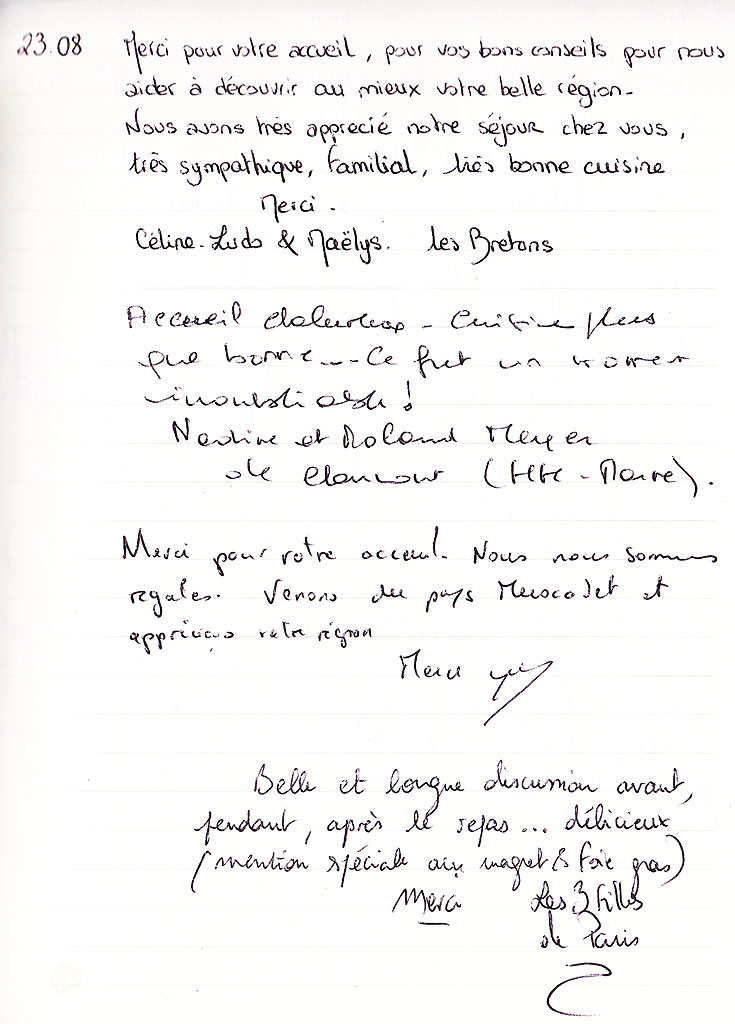 23.08
Merci pour votre accueil, pour vos bons conseils pour nous
aider à découvrir au mieux votre belle région.
Nous avons très apprecié notre séjour chez vous,
très sympathique, familial, très bonne cuisine
Merci.
Céline. Ludo & Maëlys. les Bretons
Accueil chaleureux - Cuisine plus
que bonne... Ce fut un moment
inoubliable !
Nadine et Roland Meyer
de (Hte - Marne).
Merci pour votre acceuil. Nous nous sommes
regales. Venons du pays Muscadet et
apprécions votre région
Merci
Belle et longue discussion avant,
pendant, après le repas... délicieux
(mention spéciale aux magret & foie gras)
Merci Les 3 filles
de Paris